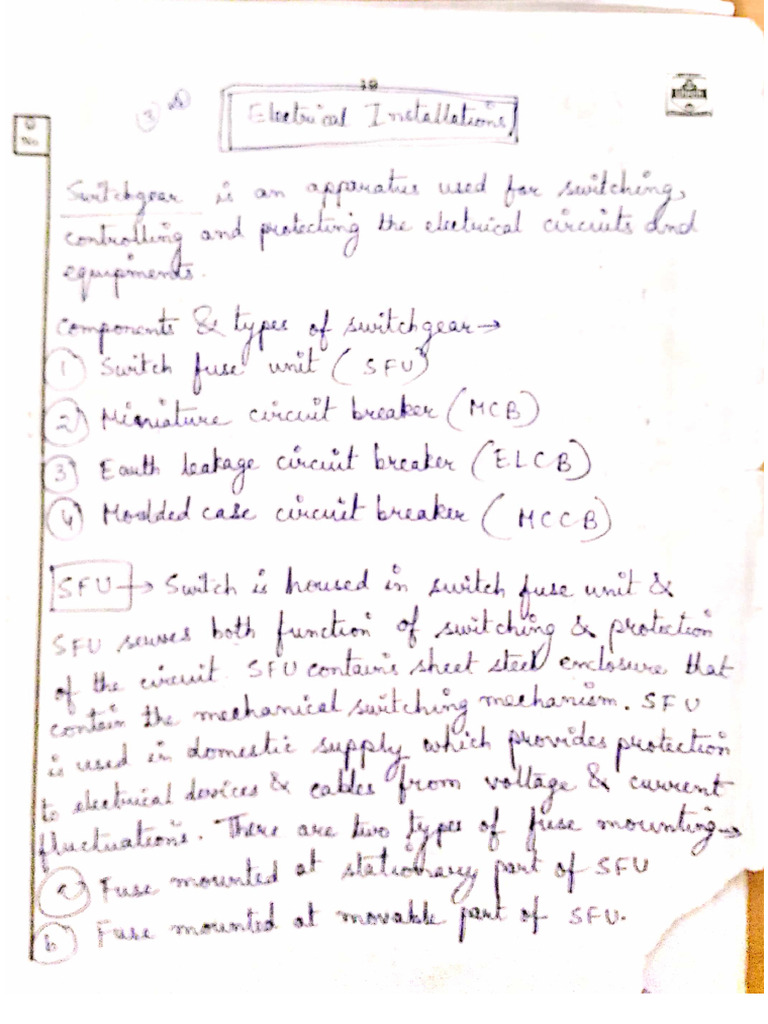 10
3
Electrical Installations
No
Switchgear is an apparatus used for switching,
controlling and protecting the electrical circuits and
equipments.
Components & types of switchgear →
1 Switch fuse unit (SFU)
2 Miniature circuit breaker (MCB)
3 Earth leakage circuit breaker (ELCB)
4 Moulded case circuit breaker (MCCB)
SFU → Switch is housed in switch fuse unit &
SFU serves both function of switching & protection
of the circuit. SFU contains sheet steel enclosure that
contain the mechanical switching mechanism. SFU
is used in domestic supply which provides protection
to electrical devices & cables from voltage & current
fluctuations. There are two types of fuse mounting →
a Fuse mounted at stationary part of SFU
b Fuse mounted at movable part of SFU.